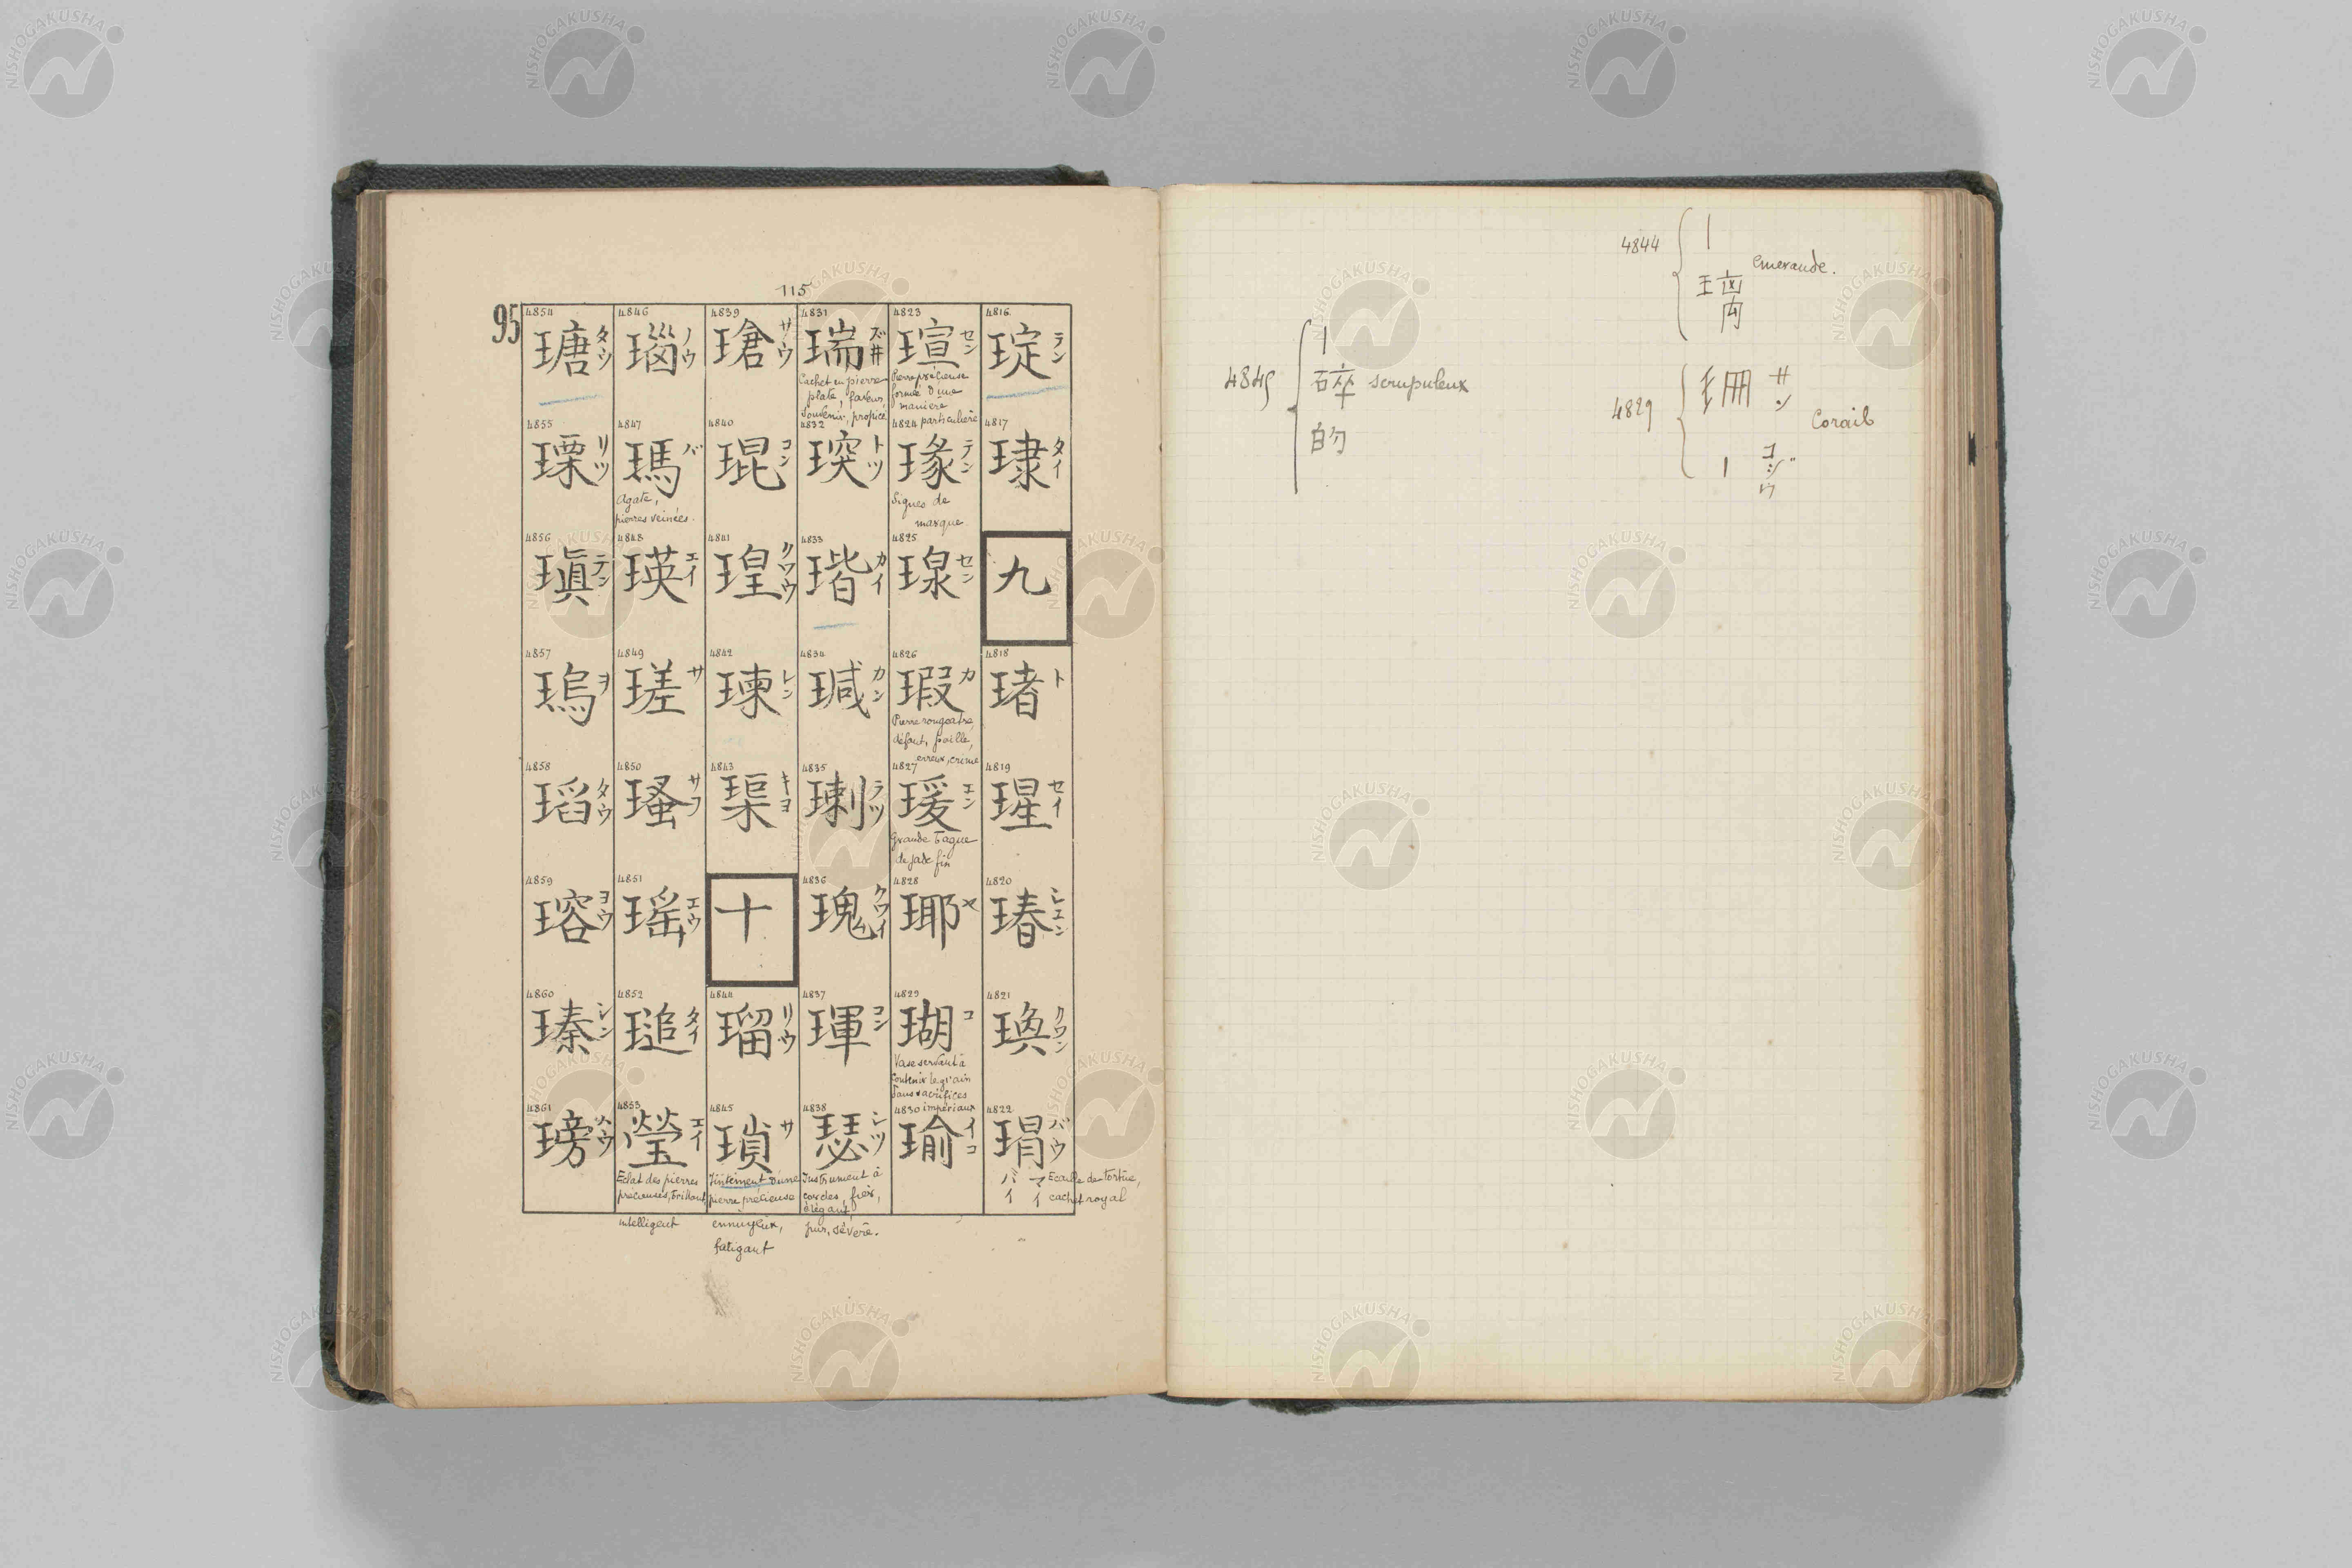 115
95
4816
琔 テン
4817
㻖 タイ
九
4818
琽 ト
4819
瑆 セイ
4820
瑃 シュン
4821
瑍 クワン
4822
瑁 バウ
バイ マイ
Ecaille de tortue,
cachet royal
4823
瑄 セン
Pierre précieuse
formée d'une
manière
particulière
4824
瑑 テン
Signes de
marque
4825
瑔 セン
4826
瑕 カ
Pierre rougeatre,
défaut, paille,
erreur, crime
4827
瑗 エン
Grande bague
de jade fin
4828
瑘 ヤ
4829
瑚 コ
Vase servant à
contenir le grain
dans sacrifices
impériaux
4830
瑜 イコ
4831
瑞 ズ井
Cachet en pierre
plate, faveur,
souvenir, propice
4832
㻠 トツ
4833
瑎 カイ
4834
瑊 カン
4835
瑓 ラツ
4836
瑰 クワイ
4837
瑻 コン
4838
瑟 シツ
Instrument à
cordes, fier,
élégant,
pur, sévère.
4839
瑲 サウ
4840
琨 コン
4841
瑝 クワウ
4842
瑓 レン
4843
璖 キヨ
十
4844
瑠 リウ
4845
瑣 サ
Tintement d'une
pierre précieuse
ennuyeux,
fatigant
4846
瑙 ノウ
4847
瑪 バ
Agate,
pierres veinées.
4848
瑛 エイ
4849
瑳 サ
4850
瑵 サヲ
4851
瑤 エウ
4852
瑇 タイ
4853
瑩 エイ
Eclat des pierres
precieuses, brillant,
intelligent
4854
瑭 タウ
4855
瑮 リツ
4856
瑱 テン
4857
瑦 ヲ
4858
瑫 タウ
4859
瑢 ヨウ
4860
瑧 シン
4861
瑼 ハウ
4844
｜
璃 emeraude.
4829
珊 サン
｜ コジウ
Corail
4845
｜
碎 scrupuleux
的
NISHOGAKUSHA